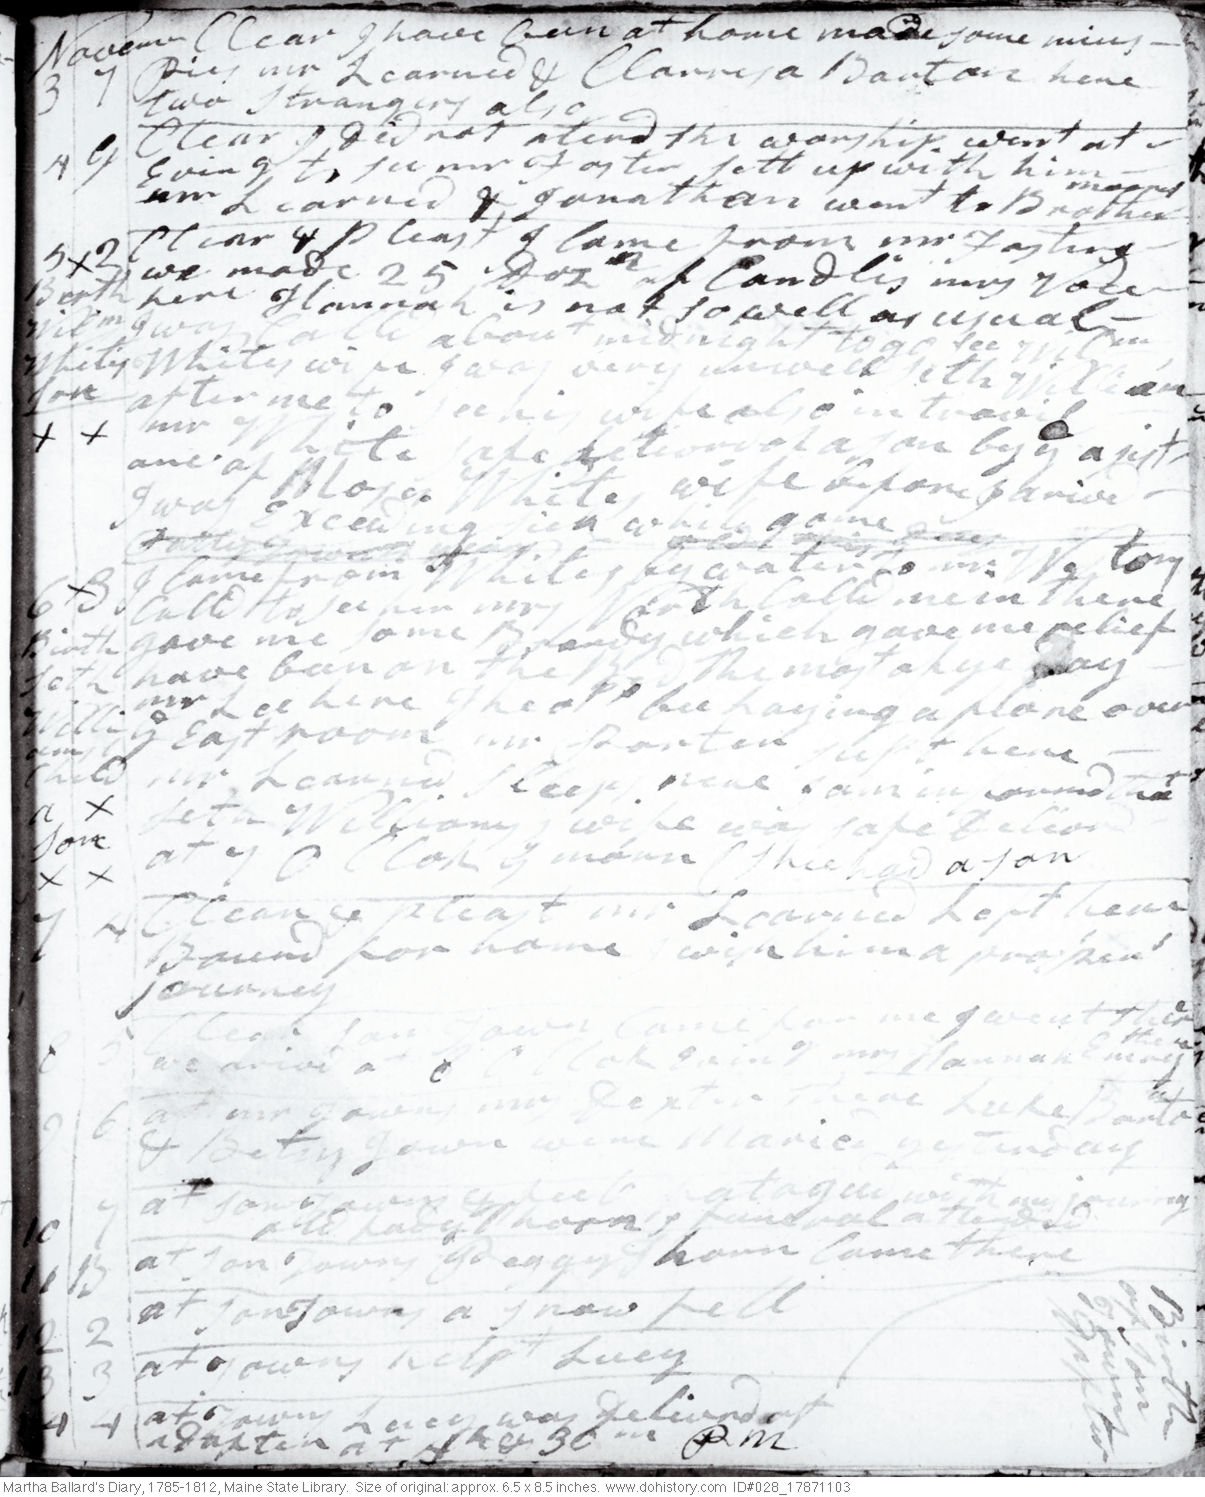 Novemr Clear I have been at home made some mins
3 7 Pies mr Learned & Clarresa Barton here
two Strangers also
Clear I did not atend the worship went at
4 G Eving to see mr Foster sett up with him
mr Learned & Jonathan went to Brother moores
5 x 2 Clear & Pleast I Came from mr Fosters
we made 25 Doz n of Candles mrs
Birth here Hannah is not so well as usual
Wilm I was Calld about midnight to go see Wm
Whites Whites wife I was very unwell Seth William
Son after me to see his wife also in travil
x x mr White safe deliverd a son by y asist
anc of Moses Whites wife before I arivd
I was Exceeding sick while gone
I Came from Whites by water to mr Westons
6 x 3 Calld to see her mrs North Calld me in there
Birth gave me some Brandy which gave me relief
Seth have ben on the Bed the most of ye Day
Willi mr Lee here He & Pp bee laying a flore over
ams y East room mr Porter slept here
Child mr Learned sleeps here I am informd that
a x Seth Williams wife was safe deliverd
Son at 4 O Clok y morn Shee had a son
x x
7 4 Clear & pleast mr Learned Left hear
Bound for home I wish him a prosper's
journey
Clear son Town Came for me I went ther
8 5 we arivd at 8 O Clok Evng mrs Hannah Emery there
9 6 at mr Towns mrs Dexter there Luke Barton
& Betsy Town were Maried yesterday
10 7 at son Towns I feel fatagud with my journey
old Lady Thorns funeral attended
11 G at son Towns Peggy Thorn Came there
12 2 at son Towns a snow fell
13 3 at Towns helpt Lucy
4 4 at Towns Lucy was deliverd of
a daughter at 4 h & 30 m P M
Birth
of son
Towns
Daughter
Martha Ballard's Diary, 1785-1812, Maine State Library. Size of original: approx. 6.5 x 8.5 inches. www.dohistory.com ID#028_17871103